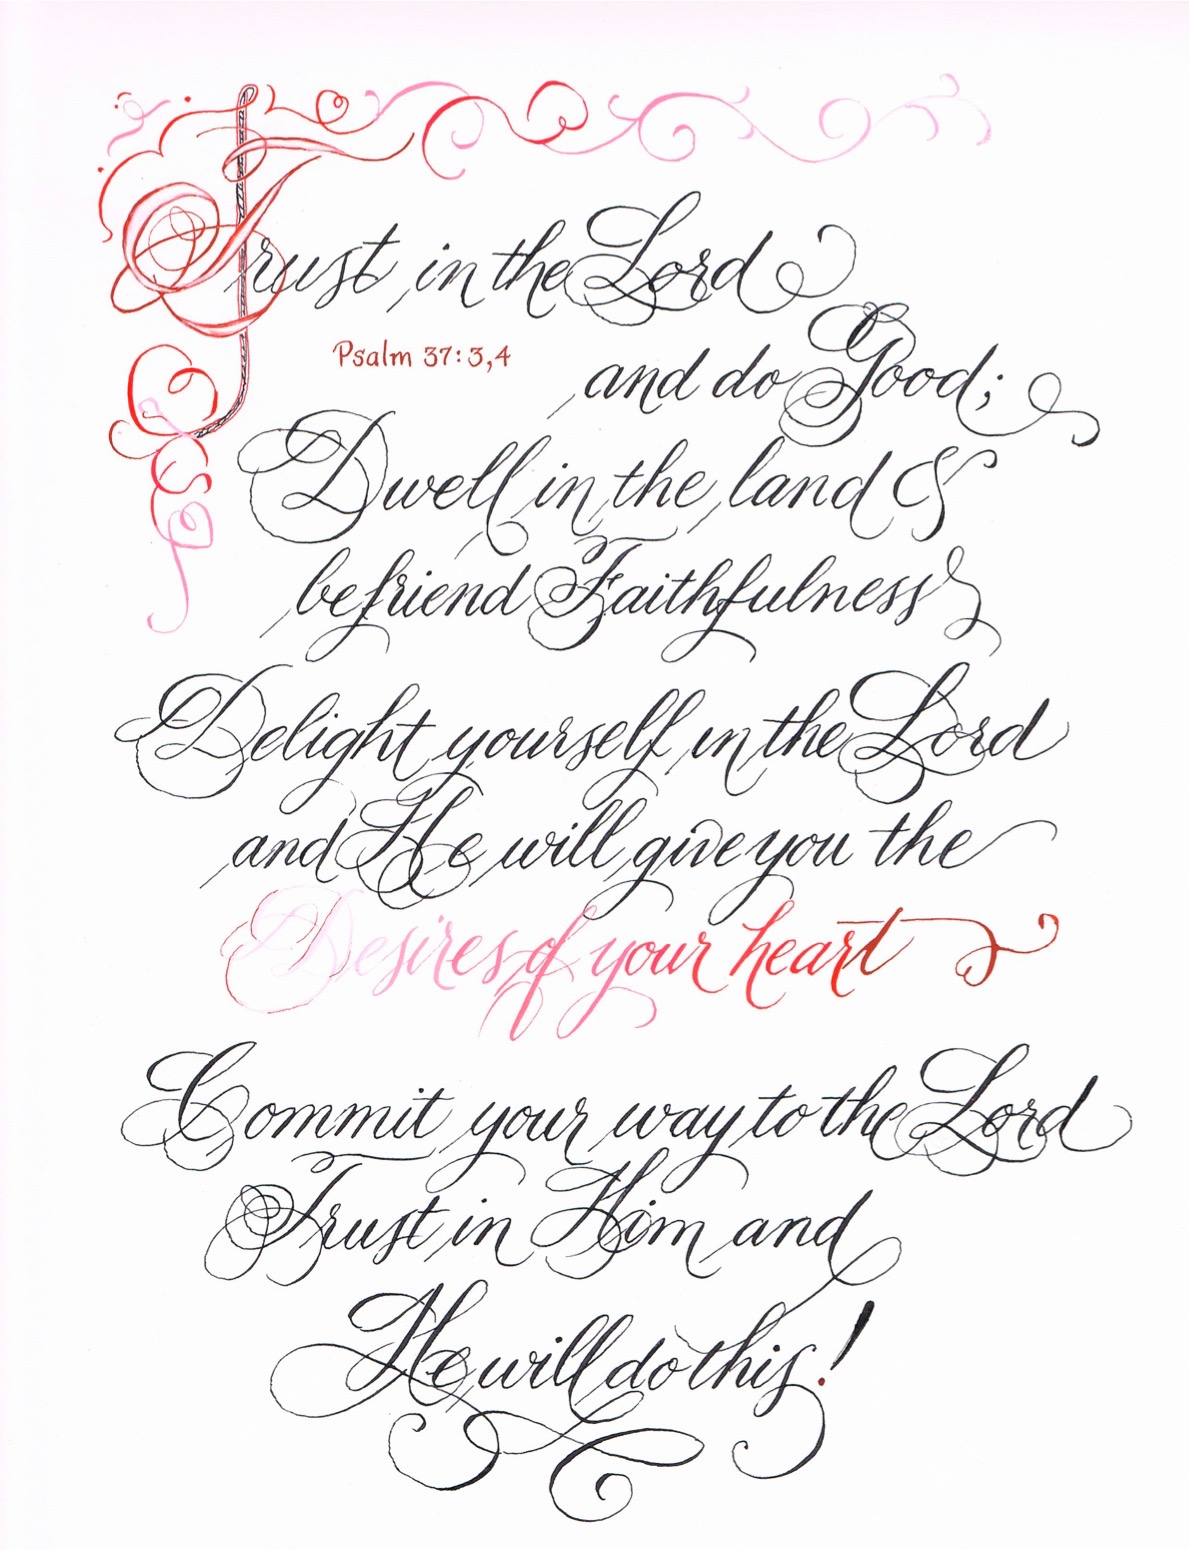 Trust in the Lord
Psalm 37:3,4
and do Good;
Dwell in the land &
befriend Faithfulness
Delight yourself in the Lord
and He will give you the
Desires of your heart
Commit your way to the Lord
Trust in Him and
He will do this!